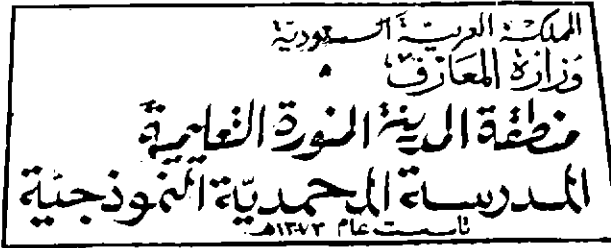 المملكة العربية السعودية
وزارة المعارف
منطقة المدينة المنورة التعليمية
المدرسة المحمدية النموذجية
تأسست عام ١٣٧٣هـ